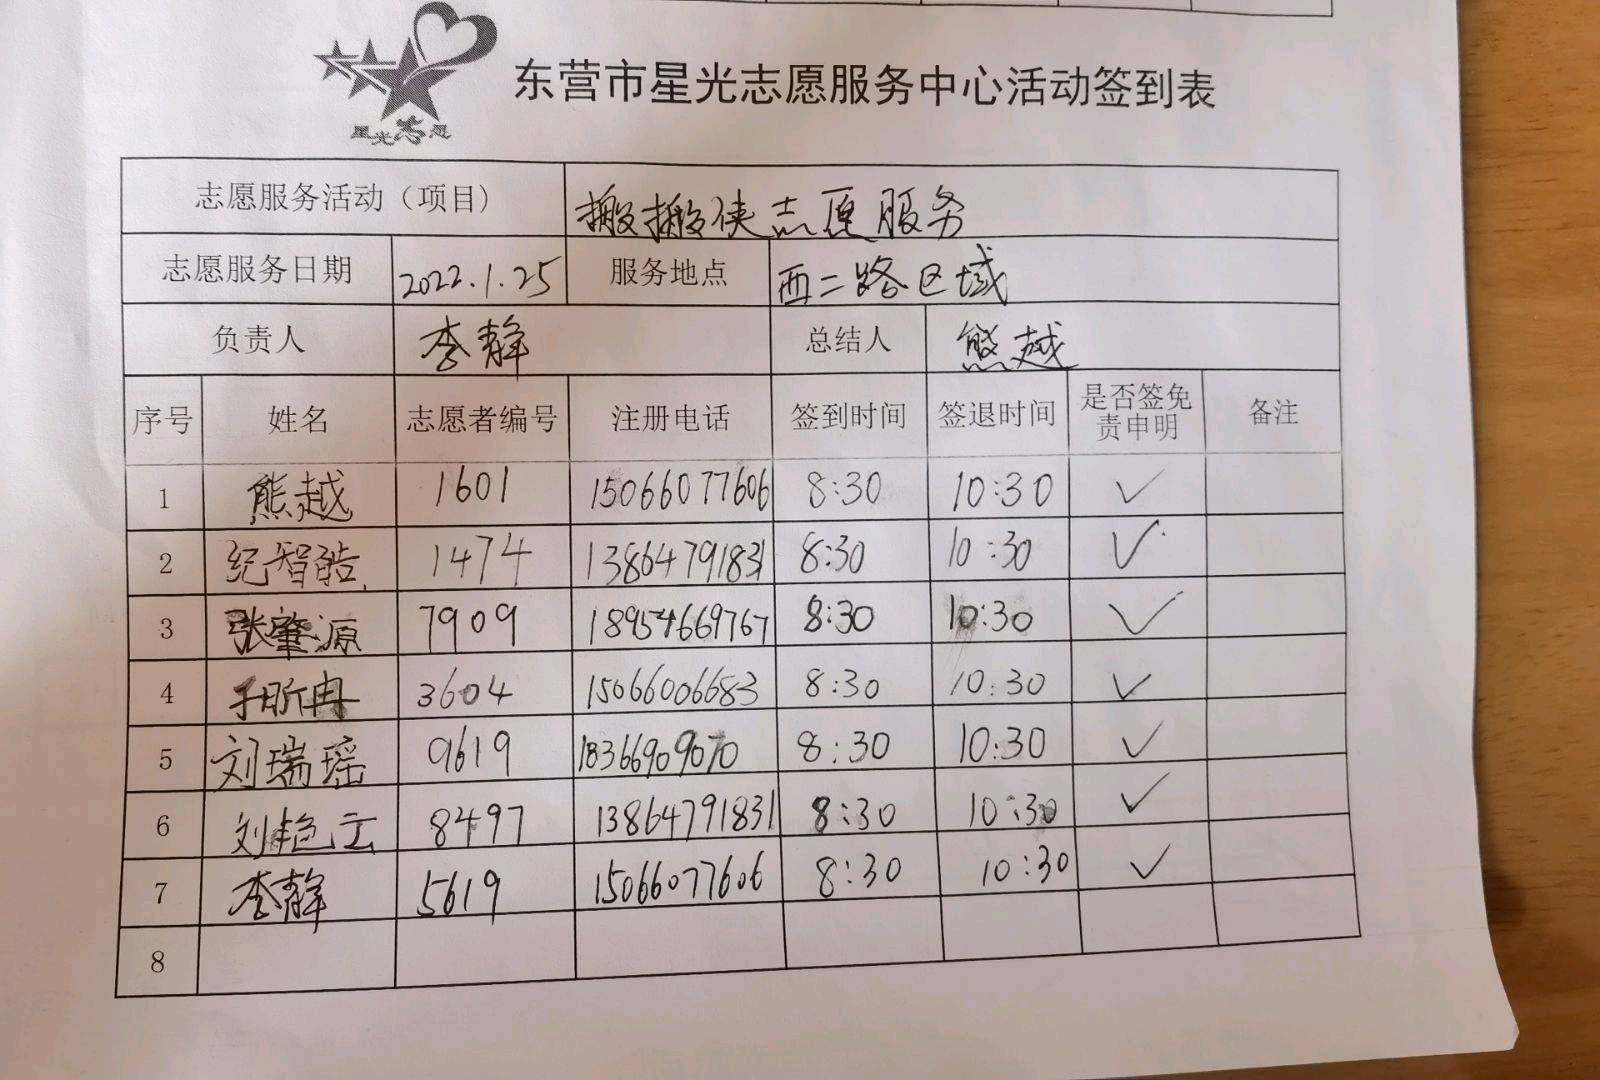 星光志愿
东营市星光志愿服务中心活动签到表
志愿服务活动（项目） 搬搬侠志愿服务
志愿服务日期 2022.1.25 服务地点 西二路区域
负责人 李静 总结人 熊越
序号 姓名 志愿者编号 注册电话 签到时间 签退时间 是否签免责申明 备注
1 熊越 1601 15066077606 8:30 10:30 ✓
2 纪智皓 1474 13864791831 8:30 10:30 ✓
3 张肇源 7909 18954669767 8:30 10:30 ✓
4 于昕冉 3604 15066006683 8:30 10:30 ✓
5 刘瑞瑶 9619 18366909070 8:30 10:30 ✓
6 刘艳云 8497 13864791831 8:30 10:30 ✓
7 李静 5619 15066077606 8:30 10:30 ✓
8